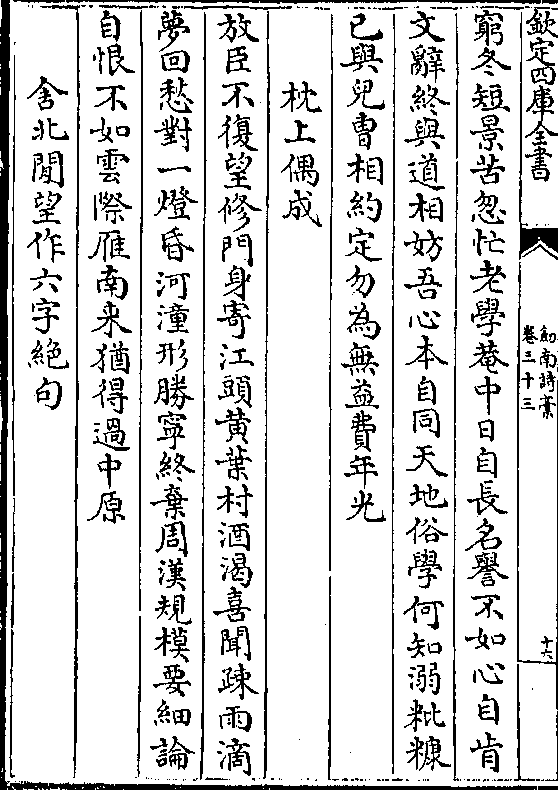 欽定四庫全書
劒南詩稾
卷三十三
十六
窮冬短景苦怱忙老學菴中日自長名譽不如心自肯
文辭終與道相妨吾心本自同天地俗學何知溺粃糠
已與兒曹相約定勿為無益費年光
枕上偶成
放臣不復望修門身寄江頭黄葉村酒渴喜聞疎雨滴
夢回愁對一燈昏河潼形勝寧終棄周漢規模要細論
自恨不如雲際雁南来猶得過中原
舍北閒望作六字絶句